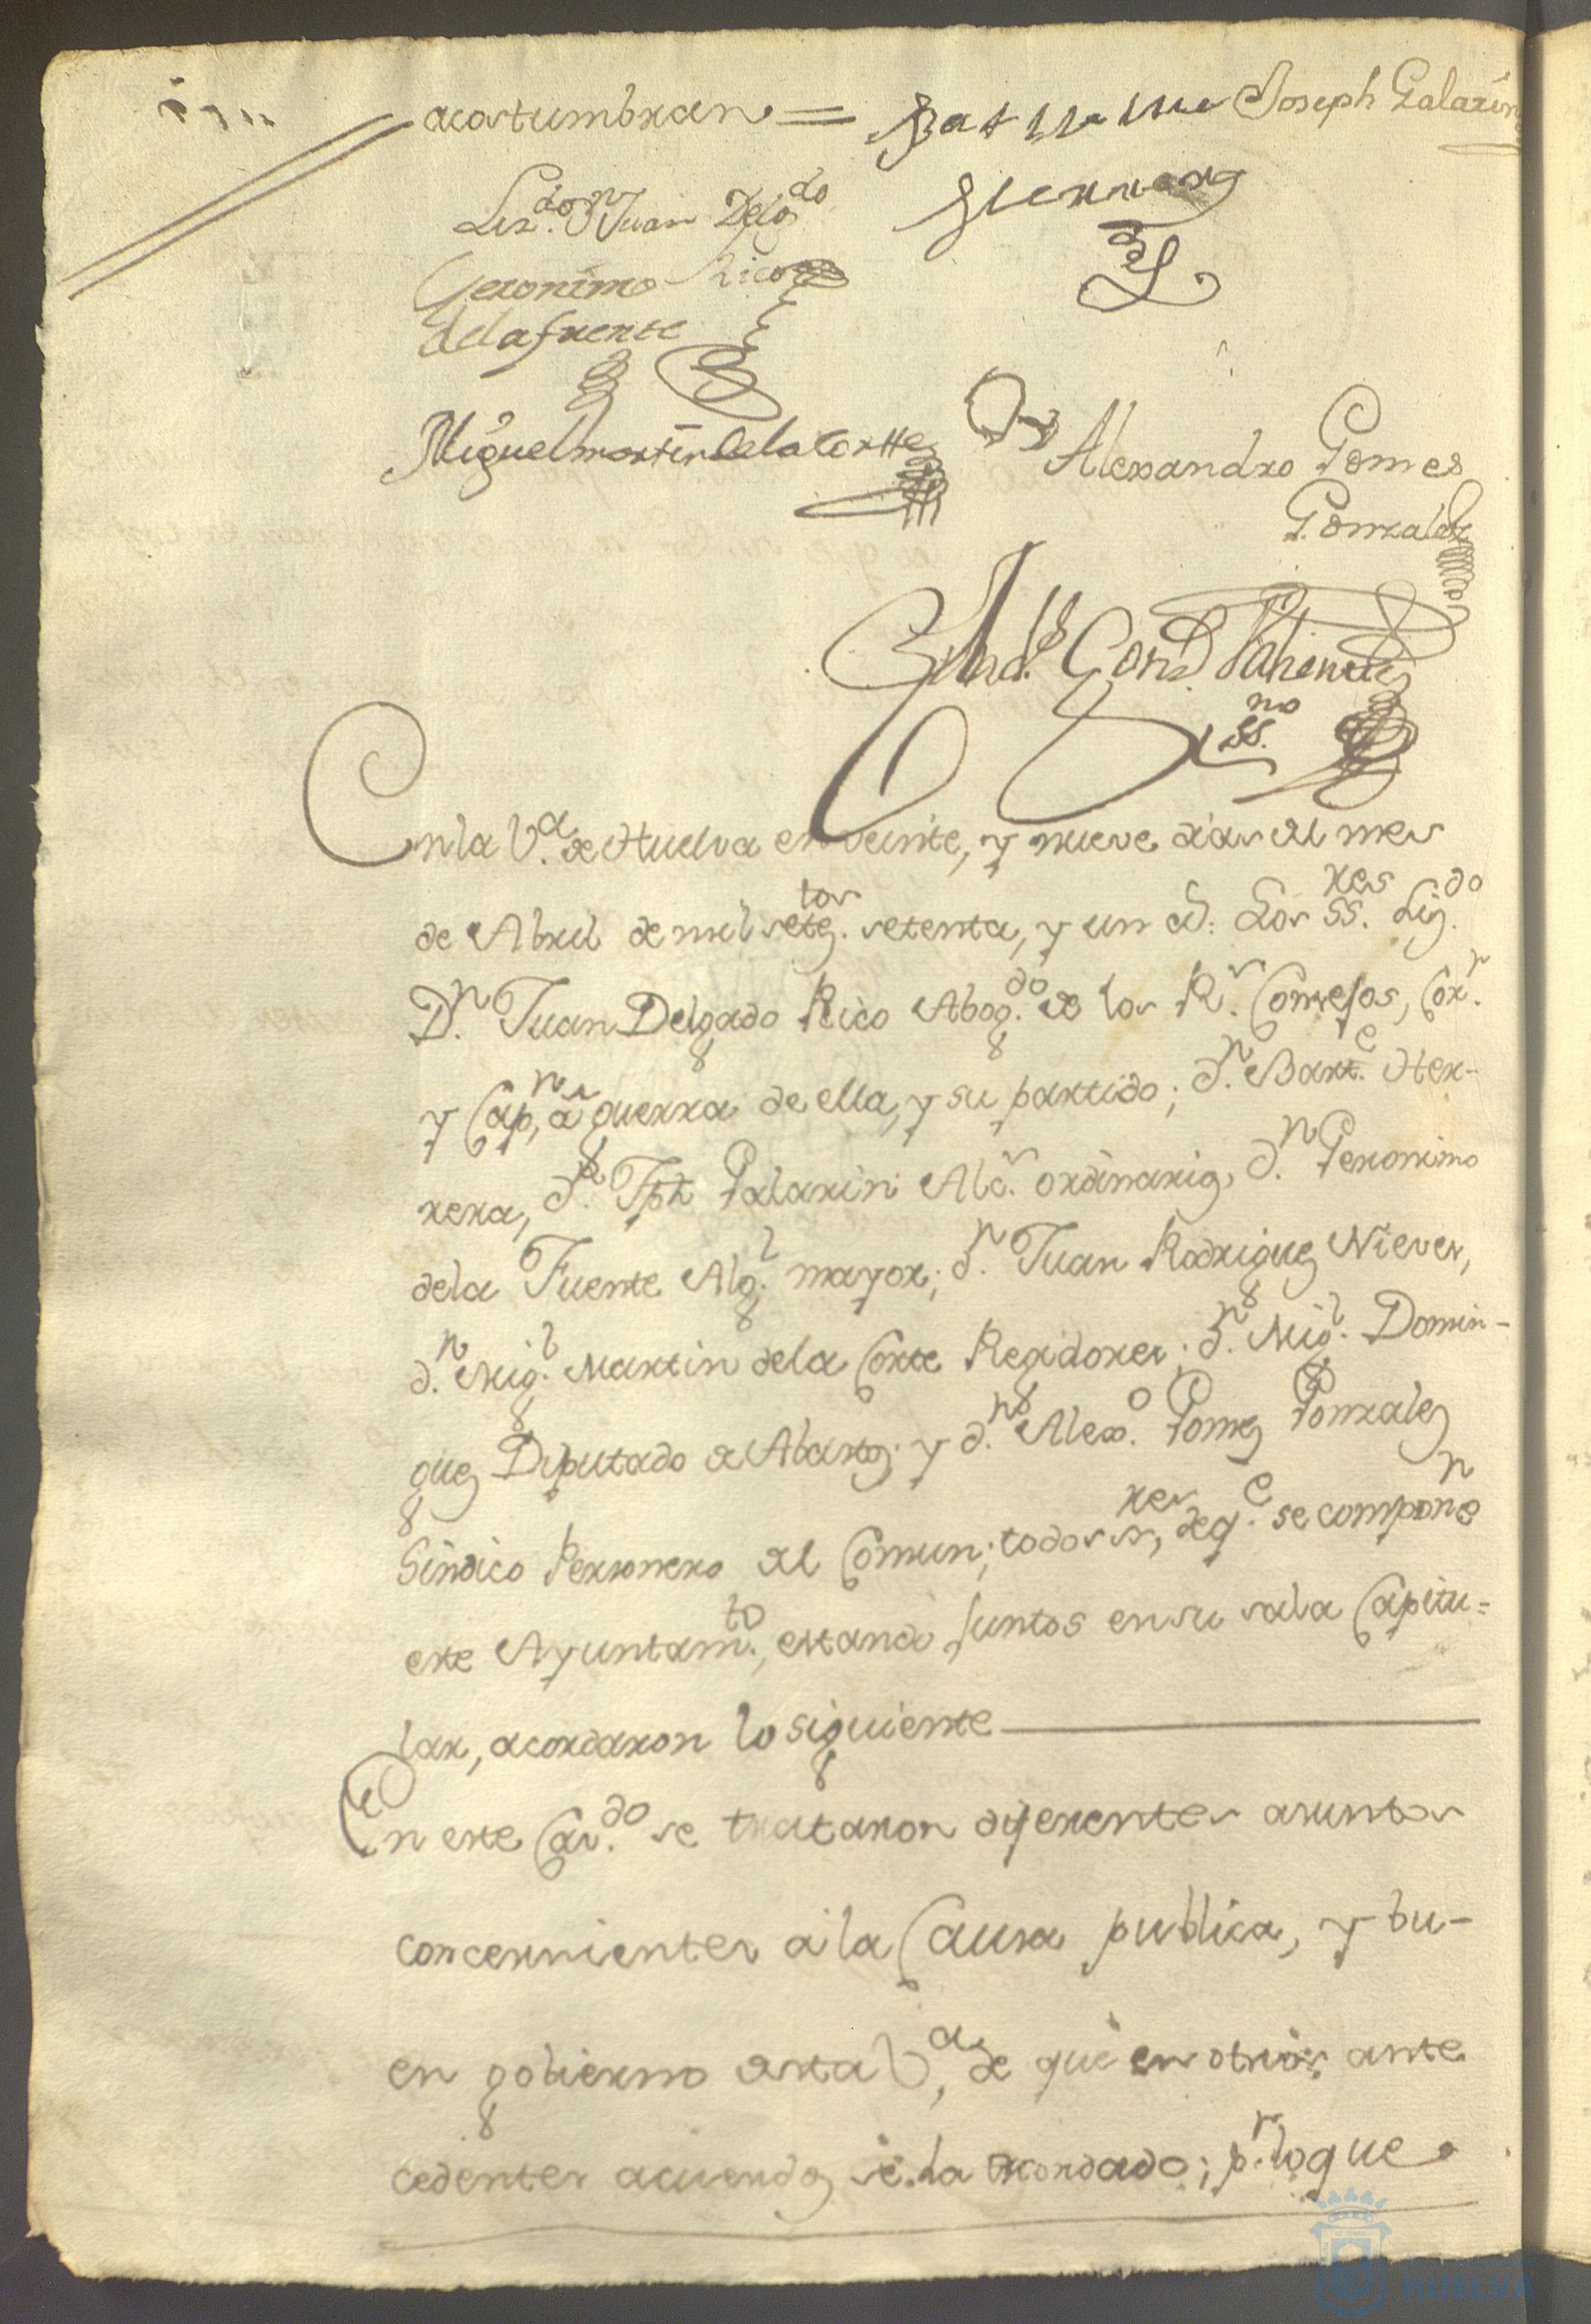 acostumbran = Bartolome Joseph Galarin
Lizdo. Dn Juan Delgdo Herrera
Geronimo Rico
de la fuente
Miguel martin de la Cortte Alexandro Gomes
Gonzalez
ssno
En la Va. de Huelva en veinte, y nueve dias del mes
de Abril de mil setezs. tos setenta, y un a.: Los SSres. Lizdo.
Dn. Juan Delgado Rico Abogdo. de los Rs. Consejos, Corr.
y Capn. a guerra de ella, y su partido; dn. Barte. Her-
rera, dn. Jph Galarin Alcs. ordinarios, dn. Geronimo
de la Fuente Algl. mayor; dn. Juan Rodriguez Nieves,
dn. Migl. Martin de la Corte Regidores; dn. Migl. Domin-
guez Diputado de Abastos; y dn. Alexo. Gomez Gonzalez
Sindico Personero del Comun; todos ssres, de qe. se componen
este Ayuntamto., estando juntos en su sala Capitu=
lar, acordaron lo siguiente
En este Cavdo. se trataron diferentes asuntos
concernientes à la Causa publica, y bu-
en gobierno desta Va, de que en otros ante
cedentes acuerdos se ha acordado; pr. lo que
HUELVA